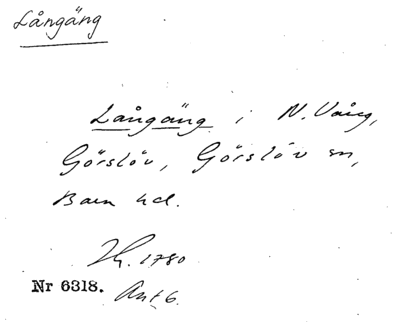 Långäng
Långäng i N. Vång,
Görslöv, Görslöv sn,
Bara hd.
1780
Nr 6318. Akt 6.